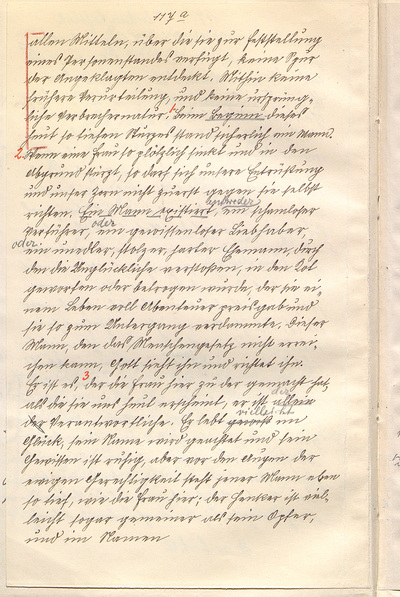 117 a
allen Mitteln, über die sie zur Feststellung
eines Personenstandes verfügt, keine Spur
der Angeklagten entdeckt. Mithin keine
frühere Verurteilung, und keine ursprüng-
liche Verbrechernatur. 1 Beim Beginn dieses
heut so tiefen Sturzes stand sicherlich ein Mann.
2. Wenn eine Frau so plötzlich sinkt und in den
Abgrund stürzt, so darf sich unsere Entrüstung
und unser Zorn nicht zuerst gegen sie selbst
richten. Ein Mann existiert, entweder ein schamloser
Verführer, oder ein gewissenloser Liebhaber,
oder: ein unedler, stolzer, harter Ehemann, durch
den die Unglückliche verstoßen, in den Kot
geworfen oder betrogen wurde, der sie ei-
nem Leben voll Abenteuer preisgab und
sie so zum Untergang verdammte. Dieser
Mann, den das Menschengesetz nicht errei-
chen kann, Gott sieht ihn und richtet ihn.
Er ist es, 3 der die Frau hier zu der gemacht hat,
als die sie uns heut erscheint, er ist allein
der Verantwortliche. Er lebt vielleicht im
Glück, sein Name wird geachtet und sein
Gewissen ist ruhig, aber vor den Augen der
ewigen Gerechtigkeit steht jener Mann eben
so tief, wie die Frau hier; der Henker ist viel-
leicht sogar gemeiner als sein Opfer,
und im Namen